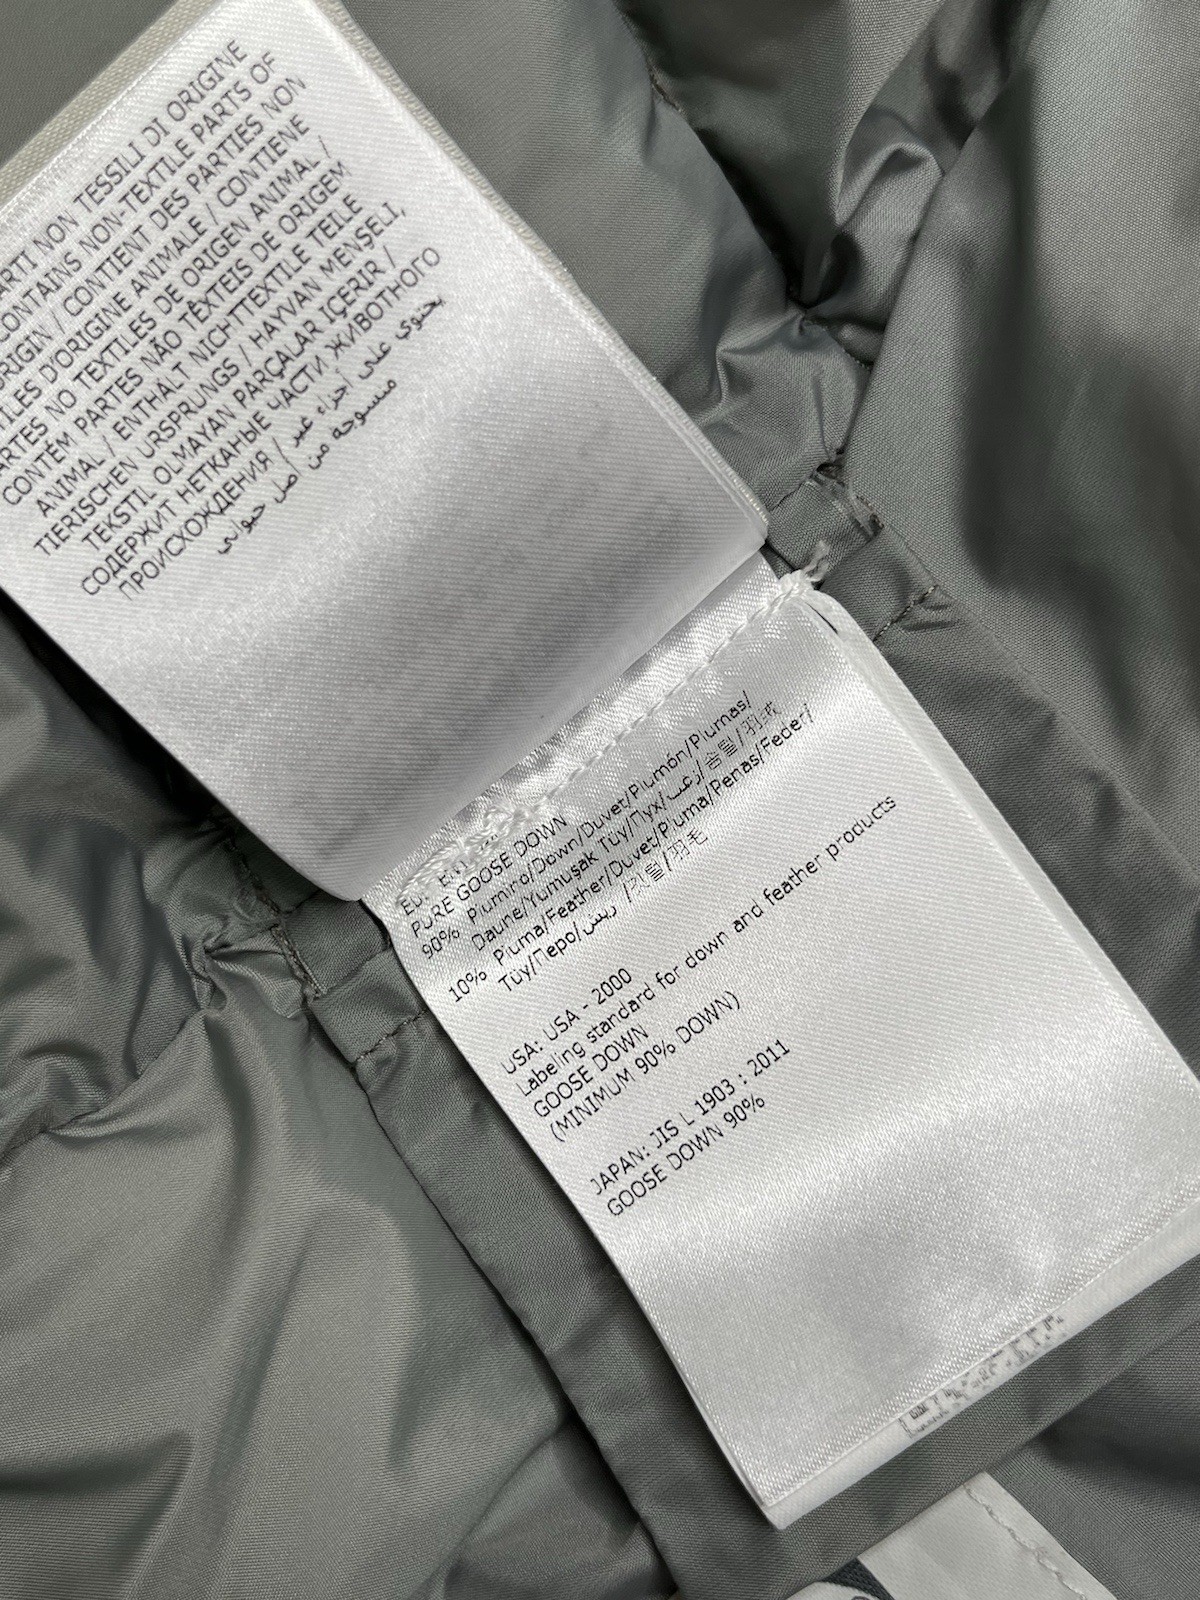 PARTI NON TESSILI DI ORIGINE
CONTAINS NON-TEXTILE PARTS OF
ORIGIN / CONTIENT DES PARTIES NON
TILES D'ORIGINE ANIMALE / CONTIENE
PARTES NO TEXTILES DE ORIGEN ANIMAL /
CONTÉM PARTES NÃO TÊXTEIS DE ORIGEM
ANIMAL / ENTHÄLT NICHTTEXTILE TEILE
TIERISCHEN URSPRUNGS / HAYVAN MENŞELI,
TEKSTIL OLMAYAN PARÇALAR IÇERIR /
СОДЕРЖИТ НЕТКАНЫЕ ЧАСТИ ЖИВОТНОГО
ПРОИСХОЖДЕНИЯ / يحتوي على أجزاء غير
منسوجة من أصل حيواني
PURE GOOSE DOWN
90% Piumino/Down/Duvet/Plumón/Plumas/
Daune/Yumuşak Tüy/Пух/زغب/솜털/羽绒
10% Piuma/Feather/Duvet/Pluma/Penas/Feder/
Tüy/Перо/ريس/깃털/羽毛
USA: USA - 2000
Labeling standard for down and feather products
GOOSE DOWN
(MINIMUM 90% DOWN)
JAPAN: JIS L 1903 : 2011
GOOSE DOWN 90%